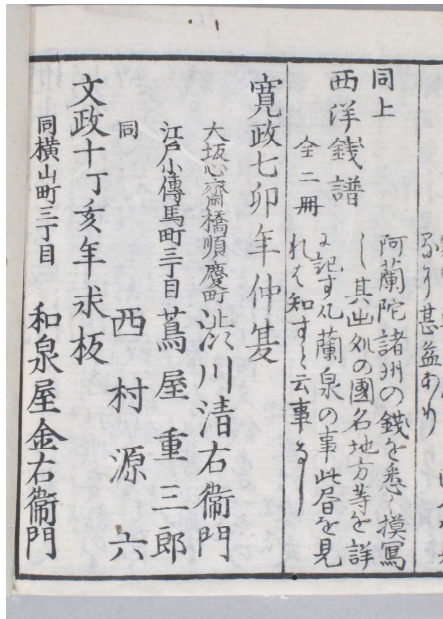 るに甚益あり
同上
西洋銭譜
全二冊
阿蘭陀諸州の銭を悉く摸寫
し其出処の國名地方等を詳
に記す凡蘭泉の事此書を見
れは知すと云事なし
寛政七卯年仲夏
大坂心齋橋順慶町 澁川清右衞門
江戸小傳馬町三丁目 蔦屋重三郎
同 西村源六
文政十丁亥年求板
同横山町三丁目 和泉屋金右衞門